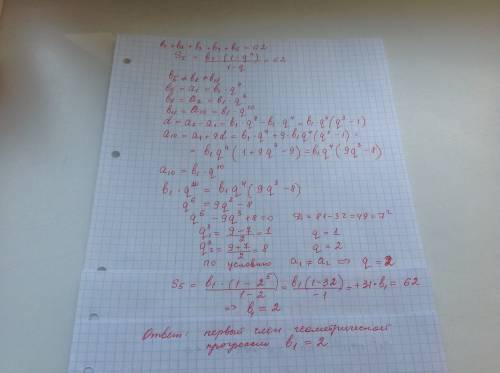 b₁+b₂+b₃+b₄+b₅=62
S₅ = b₁·(1-q⁵)/(1-q) = 62
b₅, b₈, b₁₁
b₅ = a₁ = b₁·q⁴
b₈ = a₂ = b₁·q⁷
b₁₁ = a₁₀ = b₁·q¹⁰
d = a₂-a₁ = b₁·q⁷-b₁·q⁴ = b₁q⁴(q³-1)
a₁₀ = a₁+9d = b₁·q⁴+9·b₁q⁴(q³-1) =
= b₁q⁴(1+9q³-9) = b₁q⁴(9q³-8)
a₁₀ = b₁·q¹⁰
b₁·q¹⁰ = b₁q⁴(9q³-8)
q⁶ = 9q³-8
q⁶-9q³+8=0 D=81-32=49=7²
q³₁ = (9-7)/2 = 1 q=1
q³₂ = (9+7)/2 = 8 q=2
по условию a₁ ≠ a₂ ⟹ q=2
S₅ = b₁·(1-2⁵)/(1-2) = b₁(1-32)/-1 = +31·b₁ = 62
⟹ b₁=2
Ответ: первый член геометрической
прогрессии b₁=2